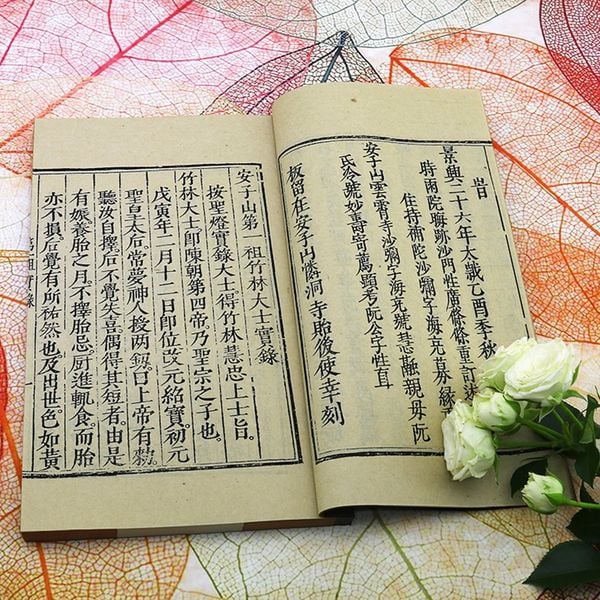 旹
景興二十六年太歲乙酉季秋
時南院晦跡沙門性廣條條重訂
住持補陀沙彌字海亮募緣
安子山雲霄寺沙彌字海亮號慧融親母阮
氏冷號妙壽寄薦顯考阮公字性耳
板留在安子山憐洞寺胎後使幸刻
安子山第一祖竹林大士實錄
按聖燈實錄大士得竹林慧忠上士旨。
竹林大士卽陳朝第四帝乃聖宗之子也。
戊寅年二月十二日卽位改元紹寶。初元
聖皇太后。常夢神人授兩劔。曰上帝有敕。
聽汝自擇。后不覺失喜偶得其短者。由是
有娠。養胎之月。不擇胎忌。厨進輒食。而胎
亦不損。后覺有所祐然也。及出世。色如黃